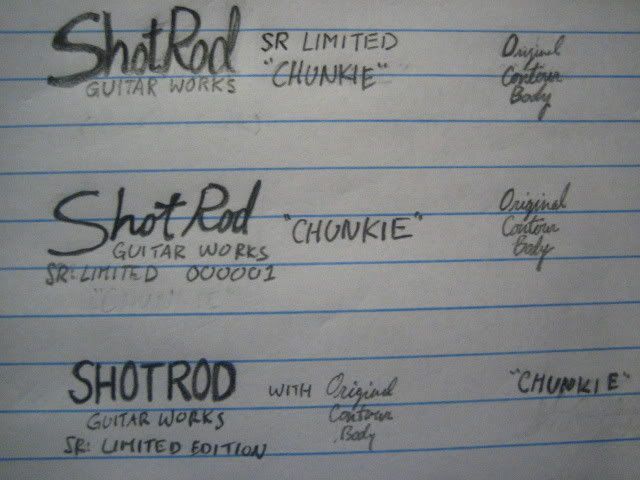 ShotRod SR LIMITED Original
GUITAR WORKS "CHUNKIE" Contour
Body
Shot Rod "CHUNKIE" Original
GUITAR WORKS Contour
SR: LIMITED 000001 Body
"CHUNKIE"
SHOTROD WITH Original "CHUNKIE"
GUITAR WORKS Contour
SR: LIMITED EDITION Body